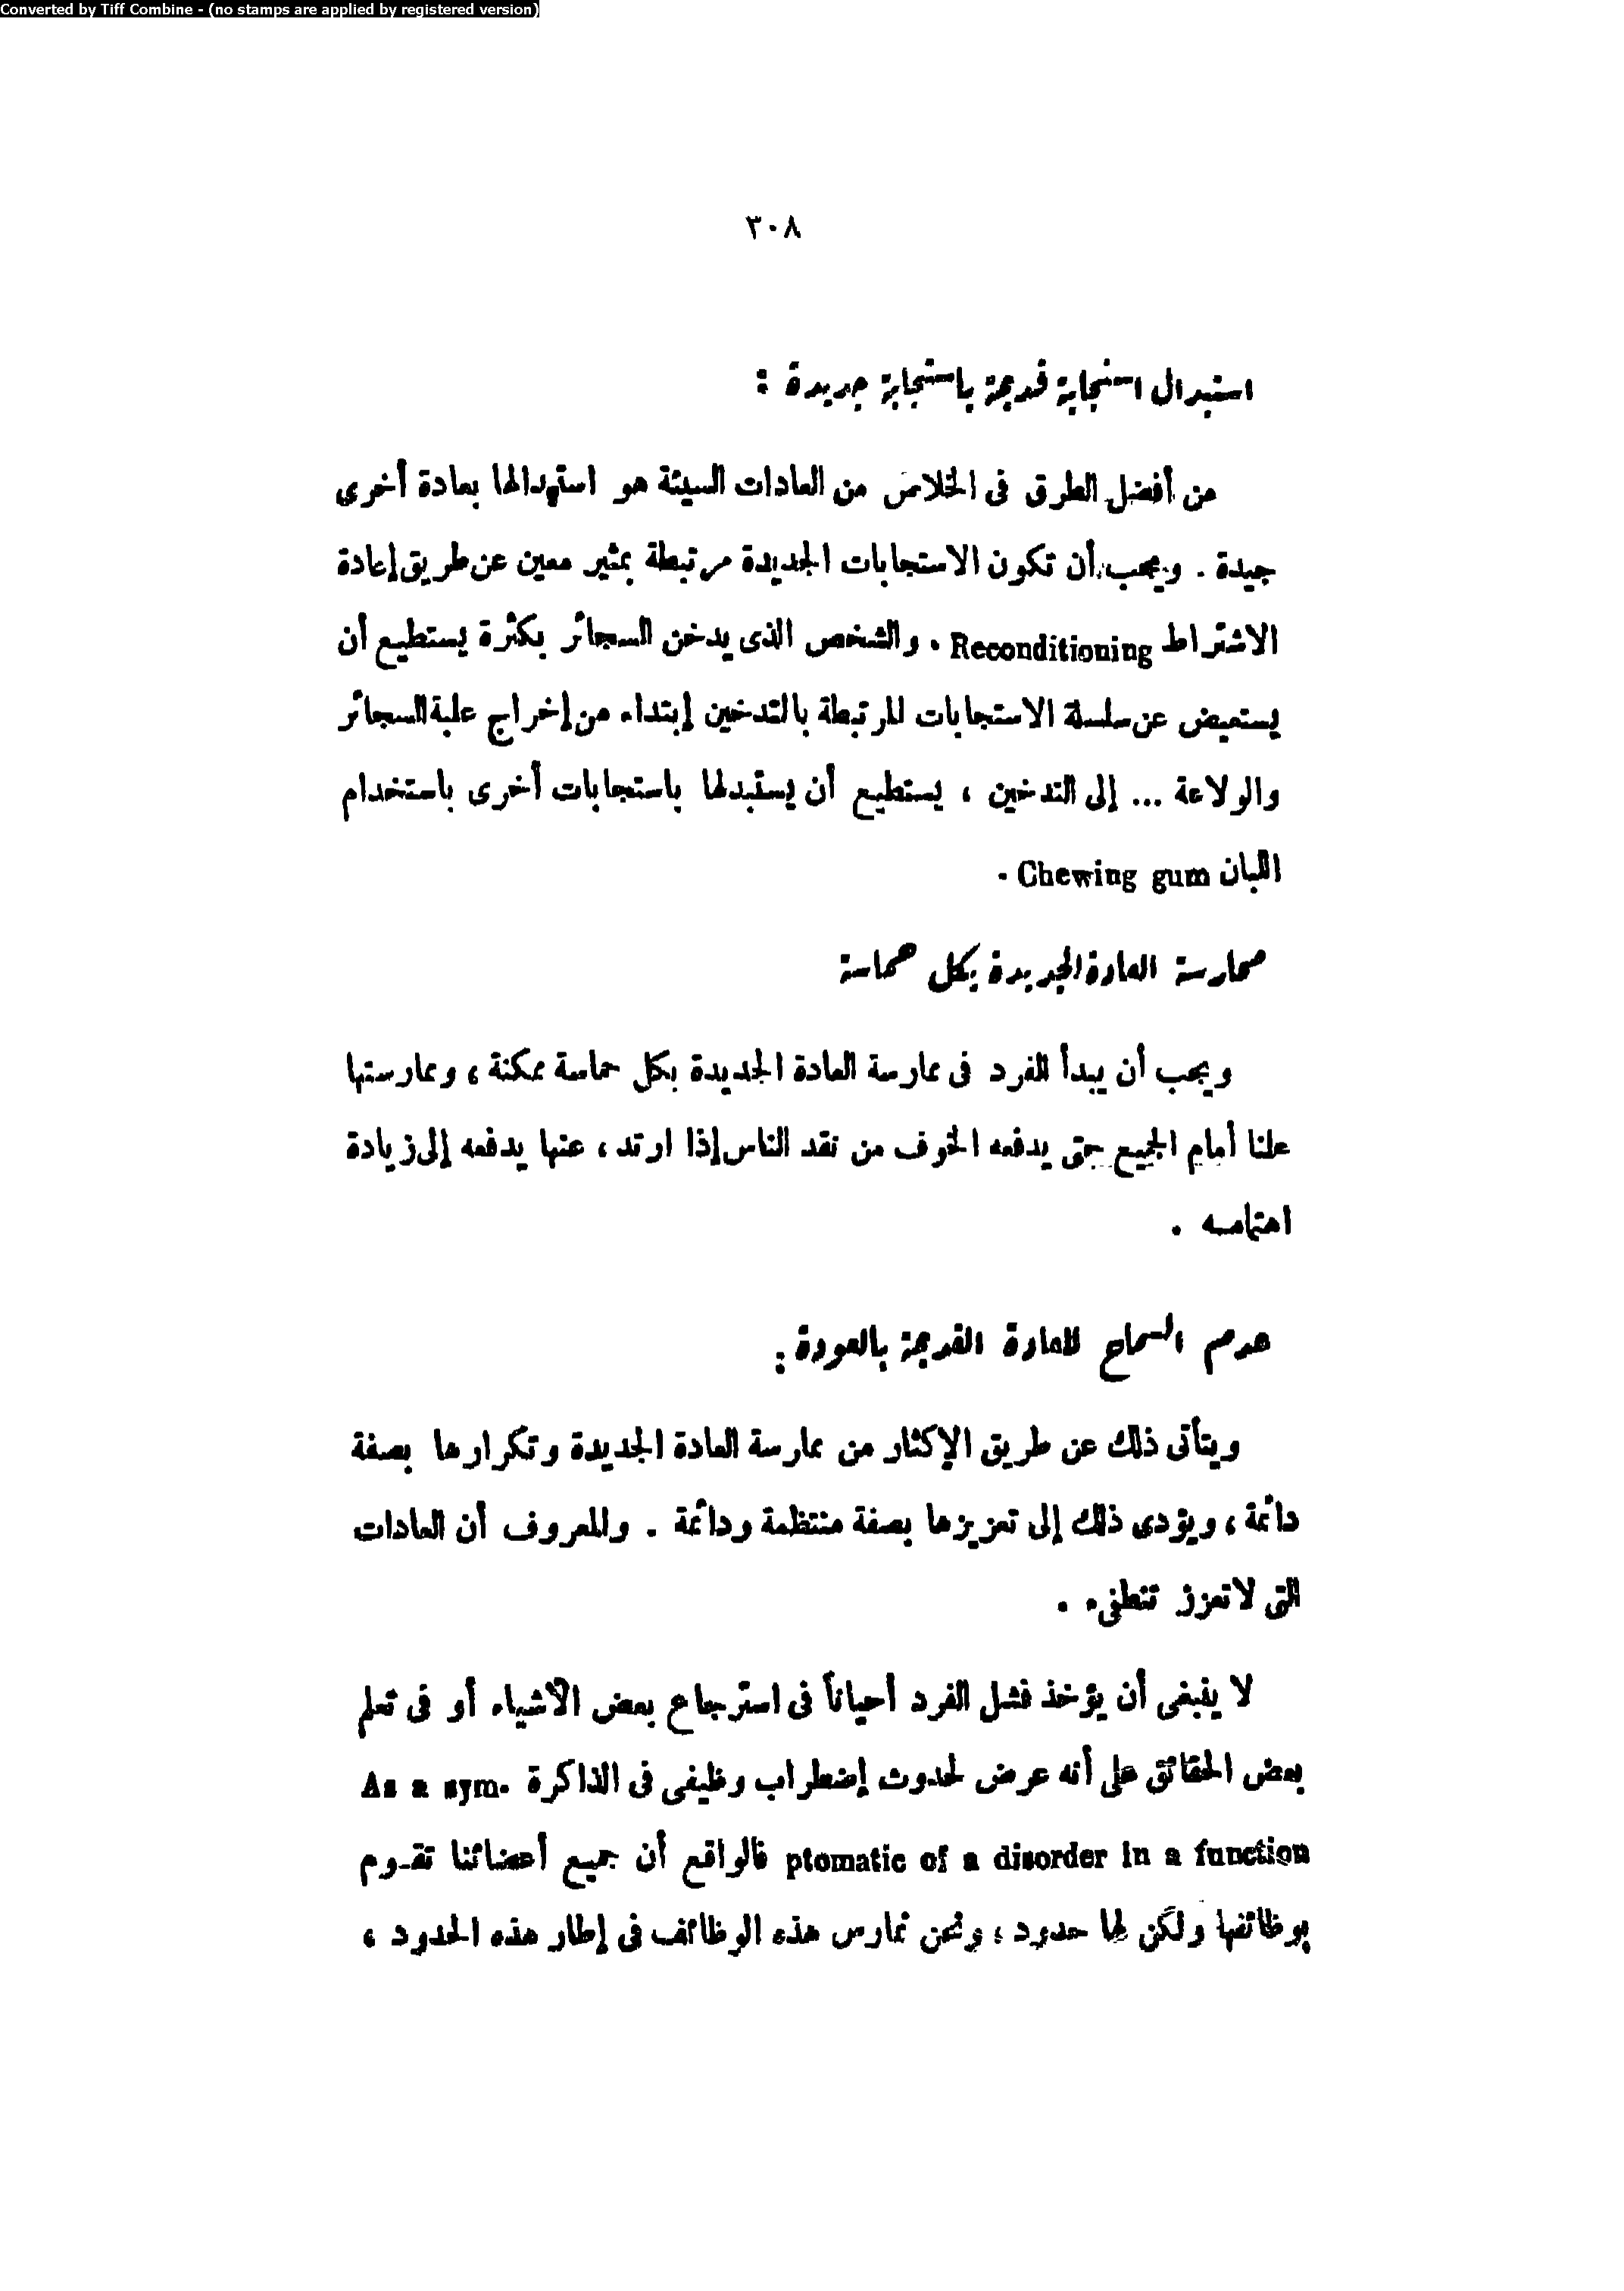 Converted by Tiff Combine - (no stamps are applied by registered version)
٣٠٨
استبدال استجابة قديمة باستجابة جديدة :
من أفضل الطرق فى الخلاص من العادات السيئة هو استبدالها بعادة أخرى
جيدة . ويجب أن تكون الاستجابات الجديدة مرتبطة بمثير معين عن طريق إعادة
الاشتراط Reconditioning . والشخص الذى يدخن السجائر بكثرة يستطيع أن
يستعيض عن سلسلة الاستجابات المرتبطة بالتدخين إبتداء من إخراج علبة السجائر
والولاعة ... إلى التدخين ، يستطيع أن يستبدلها باستجابات أخرى باستخدام
اللبان Chewing gum .
ممارسة العادة الجديدة بكل حماسة
ويجب أن يبدأ الفرد فى ممارسة العادة الجديدة بكل حماسة ممكنة ، وممارستها
علنا أمام الجميع حتى يدفعه الخوف من نقد الناس إذا ارتد ، عنها يدفعه إلى زيادة
اهتمامه .
عدم السماح للعادة القديمة بالعودة :
ويتأتى ذلك عن طريق الإكثار من ممارسة العادة الجديدة وتكرارها بصفة
دائمة ، ويؤدى ذلك إلى تعزيزها بصفة منتظمة ودائمة . والمعروف أن العادات
التى لا تعزز تنطفىء .
لا ينبغى أن يؤخذ فشل الفرد أحياناً فى استرجاع بعض الأشياء أو فى تعلم
بعض الحقائق على أنه عرض لحدوث إضطراب وظيفى فى الذاكرة As a sym-
ptomatic of a disorder in a function فالواقع أن جميع أعضائنا تقـوم
بوظائفها ولكن لها حدود ، ونحن نمارس هذه الوظائف فى إطار هذه الحدود ،